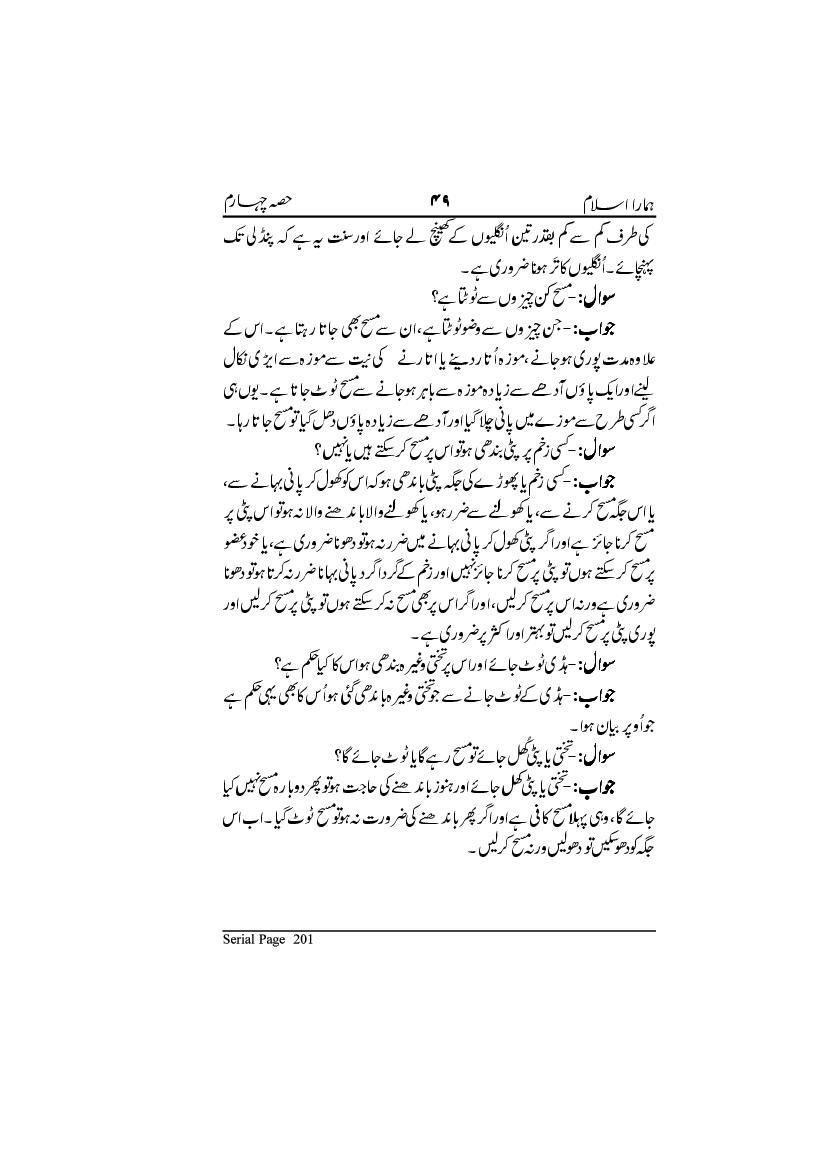 ہمارا اسلام ۴۹ حصہ چہارم
کی طرف کم سے کم بقدر تین اُنگلیوں کے کھینچ لے جائے اور سنت یہ ہے کہ پنڈلی تک
پہنچائے۔ اُنگلیوں کا تَر ہونا ضروری ہے۔
سوال:- مسح کن چیزوں سے ٹوٹتا ہے؟
جواب:- جن چیزوں سے وضو ٹوٹتا ہے، ان سے مسح بھی جاتا رہتا ہے۔ اس کے
علاوہ مدت پوری ہوجانے، موزہ اُتار دینے یا اتارنے کی نیت سے موزہ سے ایڑی نکال
لینے اور ایک پاؤں آدھے سے زیادہ موزہ سے باہر ہوجانے سے مسح ٹوٹ جاتا ہے۔ یوں ہی
اگر کسی طرح سے موزے میں پانی چلا گیا اور آدھے سے زیادہ پاؤں دھل گیا تو مسح جاتا رہا۔
سوال:- کسی زخم پر پٹی بندھی ہو تو اس پر مسح کرسکتے ہیں یا نہیں؟
جواب:- کسی زخم یا پھوڑے کی جگہ پٹی باندھی ہو کہ اس کو کھول کر پانی بہانے سے،
یا اس جگہ مسح کرنے سے، یا کھولنے سے ضرر ہو، یا کھولنے والا باندھنے والا نہ ہو تو اس پٹی پر
مسح کرنا جائز ہے اور اگر پٹی کھول کر پانی بہانے میں ضرر نہ ہو تو دھونا ضروری ہے، یا خود عضو
پر مسح کرسکتے ہوں تو پٹی پر مسح کرنا جائز نہیں اور زخم کے گرداگرد پانی بہانا ضرر نہ کرتا ہو تو دھونا
ضروری ہے ورنہ اس پر مسح کرلیں، اور اگر اس پر بھی مسح نہ کرسکتے ہوں تو پٹی پر مسح کرلیں اور
پوری پٹی پر مسح کرلیں تو بہتر اور اکثر پر ضروری ہے۔
سوال:- ہڈی ٹوٹ جائے اور اس پر تختی وغیرہ بندھی ہو اس کا کیا حکم ہے؟
جواب:- ہڈی کے ٹوٹ جانے سے جو تختی وغیرہ باندھی گئی ہو اُس کا بھی یہی حکم ہے
جو اُوپر بیان ہوا۔
سوال:- تختی یا پٹی کُھل جائے تو مسح رہے گا یا ٹوٹ جائے گا؟
جواب:- تختی یا پٹی کھل جائے اور ہنوز باندھنے کی حاجت ہو تو پھر دوبارہ مسح نہیں کیا
جائے گا، وہی پہلا مسح کافی ہے اور اگر پھر باندھنے کی ضرورت نہ ہو تو مسح ٹوٹ گیا۔ اب اس
جگہ کو دھوسکیں تو دھولیں ورنہ مسح کرلیں۔
Serial Page 201